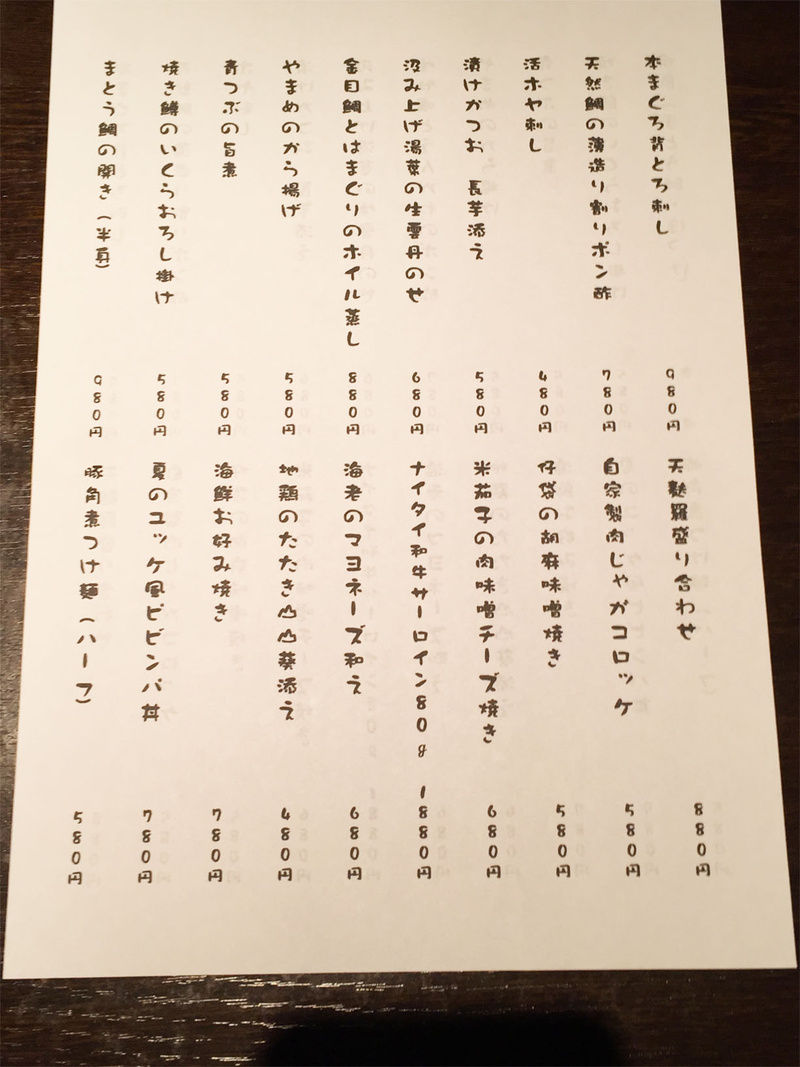 本まぐろ背とろ刺し 980円
天然鯛の薄造り割りポン酢 780円
活ホヤ刺し 480円
漬けかつお 長芋添え 580円
汲み上げ湯葉の生雲丹のせ 680円
金目鯛とはまぐりのホイル蒸し 880円
やまめのから揚げ 580円
青つぶの旨煮 580円
焼き鱒のいくらおろし掛け 580円
まとう鯛の開き(半真) 980円
天麩羅盛り合わせ 880円
自家製肉じゃがコロッケ 580円
仔袋の胡麻味噌焼き 580円
米茄子の肉味噌チーズ焼き 680円
ナイタイ和牛サーロイン80g 1880円
海老のマヨネーズ和え 680円
地鶏のたたき山山葵添え 480円
海鮮お好み焼き 780円
夏のユッケ風ビビンバ丼 780円
豚角煮つけ麺(ハーフ) 580円